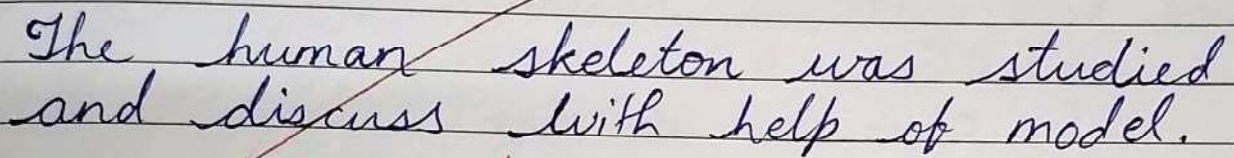 The human skeleton was studied
and discuss with help of model.